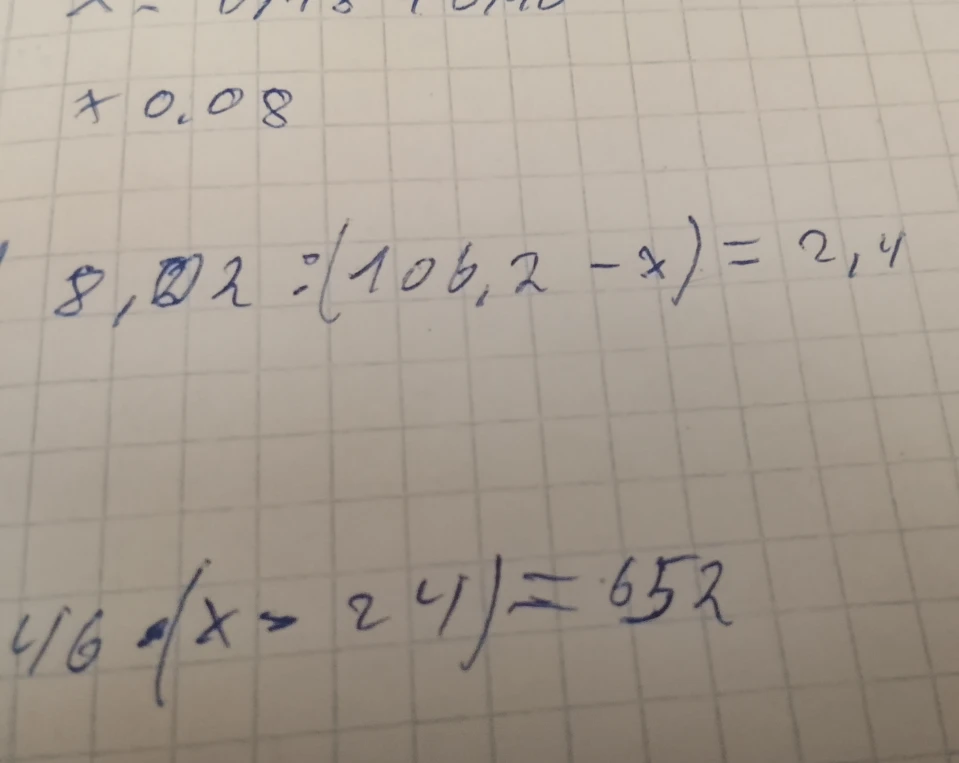 x 0.08
8,02 :(106,2 - x) = 2,4
46 •(x - 24) = 652